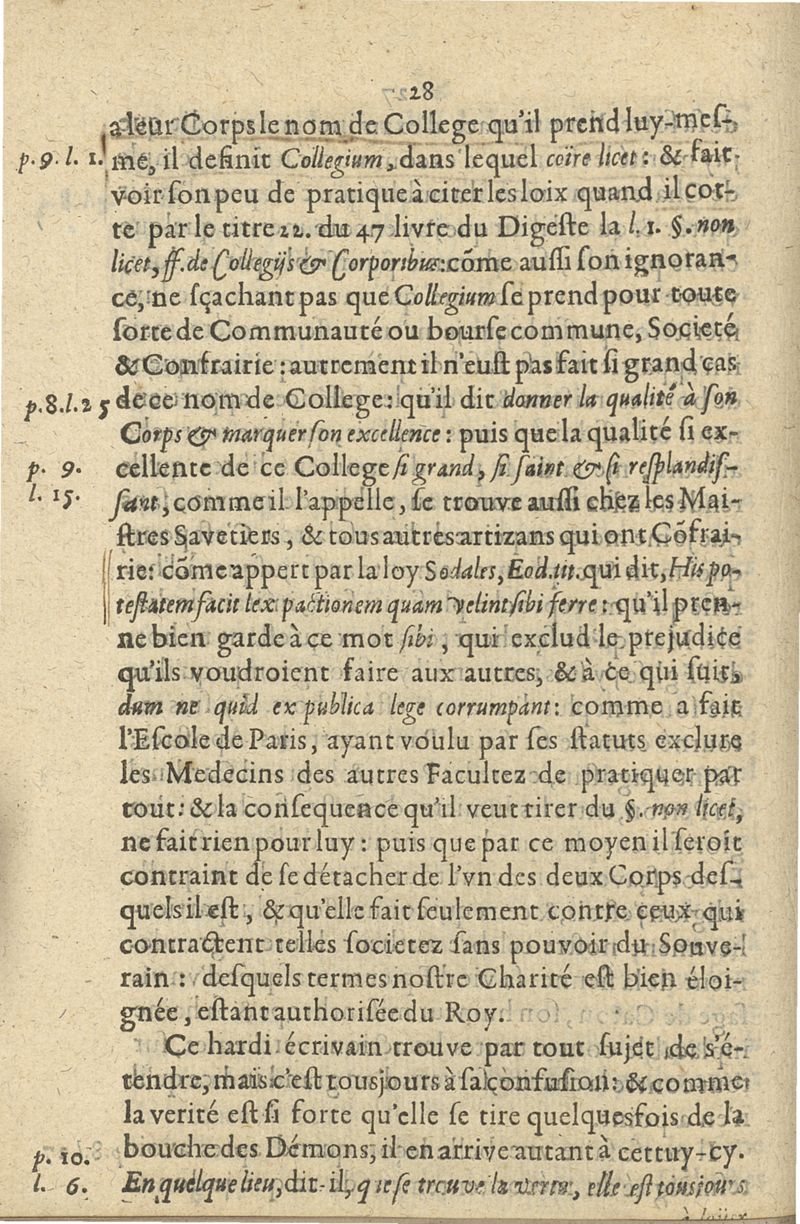 28
a leur Corps le nom de College qu'il prend luy-mes-
p. 9. l. 1. me, il definit Collegium, dans lequel coïre licet: & fait
voir son peu de pratique à citer les loix quand il cot-
te par le titre 22. du 47 livre du Digeste la l. 1. §. non
licet, ff. de Collegijs & Corporibus: cõme aussi son ignoran-
ce, ne sçachant pas que Collegium se prend pour toute
sorte de Communauté ou bourse commune, Societé
& Confrairie: autrement il n'eust pas fait si grand cas
p. 8. l. 25 de ce nom de College: qu'il dit donner la qualité à son
Corps & marquer son excellence: puis que la qualité si ex-
p. 9. cellente de ce College si grand, si saint & si resplandis-
l. 15. sant, comme il l'appelle, se trouve aussi chez les Mai-
stres Savetiers, & tous autres artizans qui ont Cõfrai-
rie: cõme appert par la loy Sodales, Eod. tit. qui dit, His po-
testatem facit lex pactionem quam velint sibi ferre: qu'il pren-
ne bien garde à ce mot sibi, qui exclud le prejudice
qu'ils voudroient faire aux autres, & à ce qui suit,
dum ne quid ex publica lege corrumpant: comme a fait
l'Escole de Paris, ayant voulu par ses statuts exclure
les Medecins des autres Facultez de pratiquer par
tout: & la consequence qu'il veut tirer du §. non licet,
ne fait rien pour luy: puis que par ce moyen il seroit
contraint de se détacher de l'vn des deux Corps des-
quels il est, & qu'elle fait seulement contre ceux qui
contractent telles societez sans pouvoir du Souve-
rain: desquels termes nostre Charité est bien éloi-
gnée, estant authorisée du Roy.
Ce hardi écrivain trouve par tout sujet de s'é-
tendre, mais c'est tousjours à sa confusion: & comme
la verité est si forte qu'elle se tire quelquesfois de la
p. 10. bouche des Démons, il en arrive autant à cettuy-cy.
l. 6. En quelque lieu, dit-il, que se trouve la vertu, elle est tousjours
à loüer